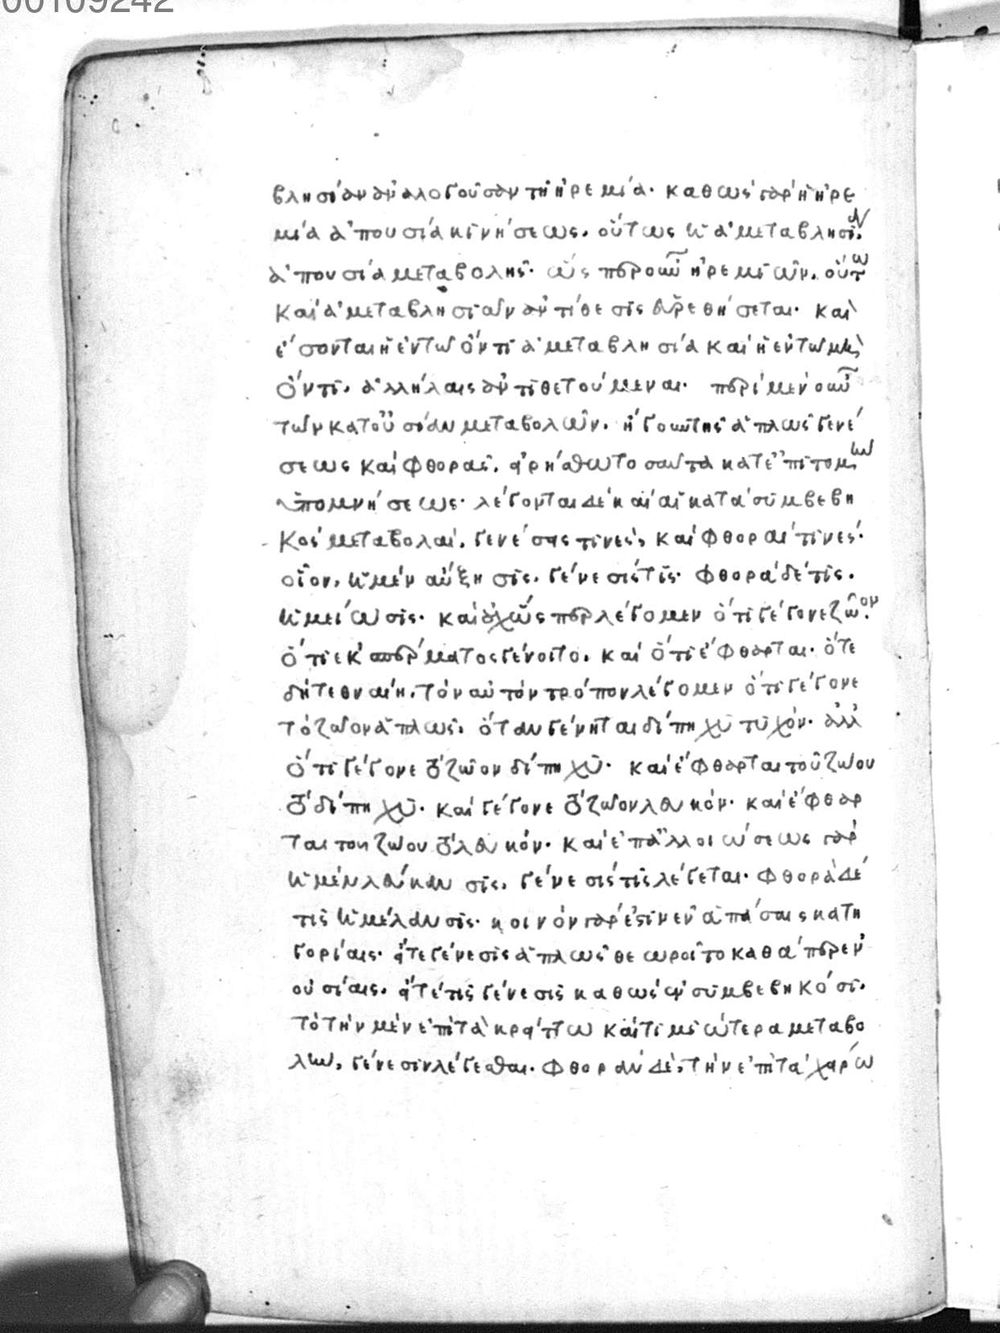 00109242
βλησίαν ἀναλογοῦσαν τῆ ἠρεμία. καθως γὰρ ἡ ἠρε
μία ἀπουσία κινήσεως. οὕτως ἡ ἀμεταβλησία
ἀπουσία μεταβολῆς. ὡς περ οὖν ἠρεμιῶν. οὕτω
καὶ ἀμεταβλησιῶν ἀντίθεσις εὑρεθήσεται. καὶ
ἔσονται ἡ ἐν τω ὄντι ἀμεταβλησία καὶ ἡ ἐν τω μὴ
ὄντι. ἀλλήλαις ἀντιθετούμεναι. περὶ μὲν οὖν
τῶν κατ οὐσίαν μεταβολῶν. ἤγουν τῆς ἁπλῶς γενέ
σεως καὶ φθορᾶς. εἰρήσθω τοσαῦτα κατ ἐπιτομὴν
ὑπομνήσεως. λέγονται δὲ καὶ αἱ κατὰ συμβεβη
κὸς μεταβολαὶ. γενέσεις τινές, καὶ φθοραί τινές.
οἷον, ἡ μὲν αὔξησις. γένεσίς τις. φθορὰ δέ τις.
ἡ μείωσις. καὶ ἁπλῶς περ λέγομεν ὅτι γέγονε ζῶον.
ὅτι ἐκ σπέρματος γένοιτο. καὶ ὅτι ἔφθαρται. ὅτε
δὴ τεθναίη. τὸν αὐτὸν τρόπον λέγομεν ὅτι γέγονε
τὸ ζῶον ἁπλῶς. ὅταν γένηται δίπηχυ τυχόν. ἀλλ
ὅτι γέγονε τὸ ζῶον δίπηχυ. καὶ ἔφθαρται τοῦ ζώου
τὸ δίπηχυ. καὶ γέγονε τὸ ζῶον λευκόν. καὶ ἔφθαρ
ται του ζώου τὸ λευκόν. καὶ ἐπ ἀλλοιώσεως γὰρ
ἡ μὲν λεύκανσις. γένεσίς τις λέγεται. φθορὰ δέ
τις ἡ μέλανσις. κοινὸν γάρ ἐστιν ἐν ἁπάσαις κατη
γορίαις. εἴτε γένεσις ἁπλῶς θεωροῖτο καθάπερ ἐν
οὐσίαις. εἴτέ τις γένεσις καθὼς ἐν συμβεβηκόσι.
τὸ τὴν μὲν ἐπὶ τὰ κρείττω καὶ τιμιώτερα μεταβο
λὴν, γένεσιν λέγεσθαι. φθορὰν δὲ, τὴν ἐπὶ τὰ χείρω